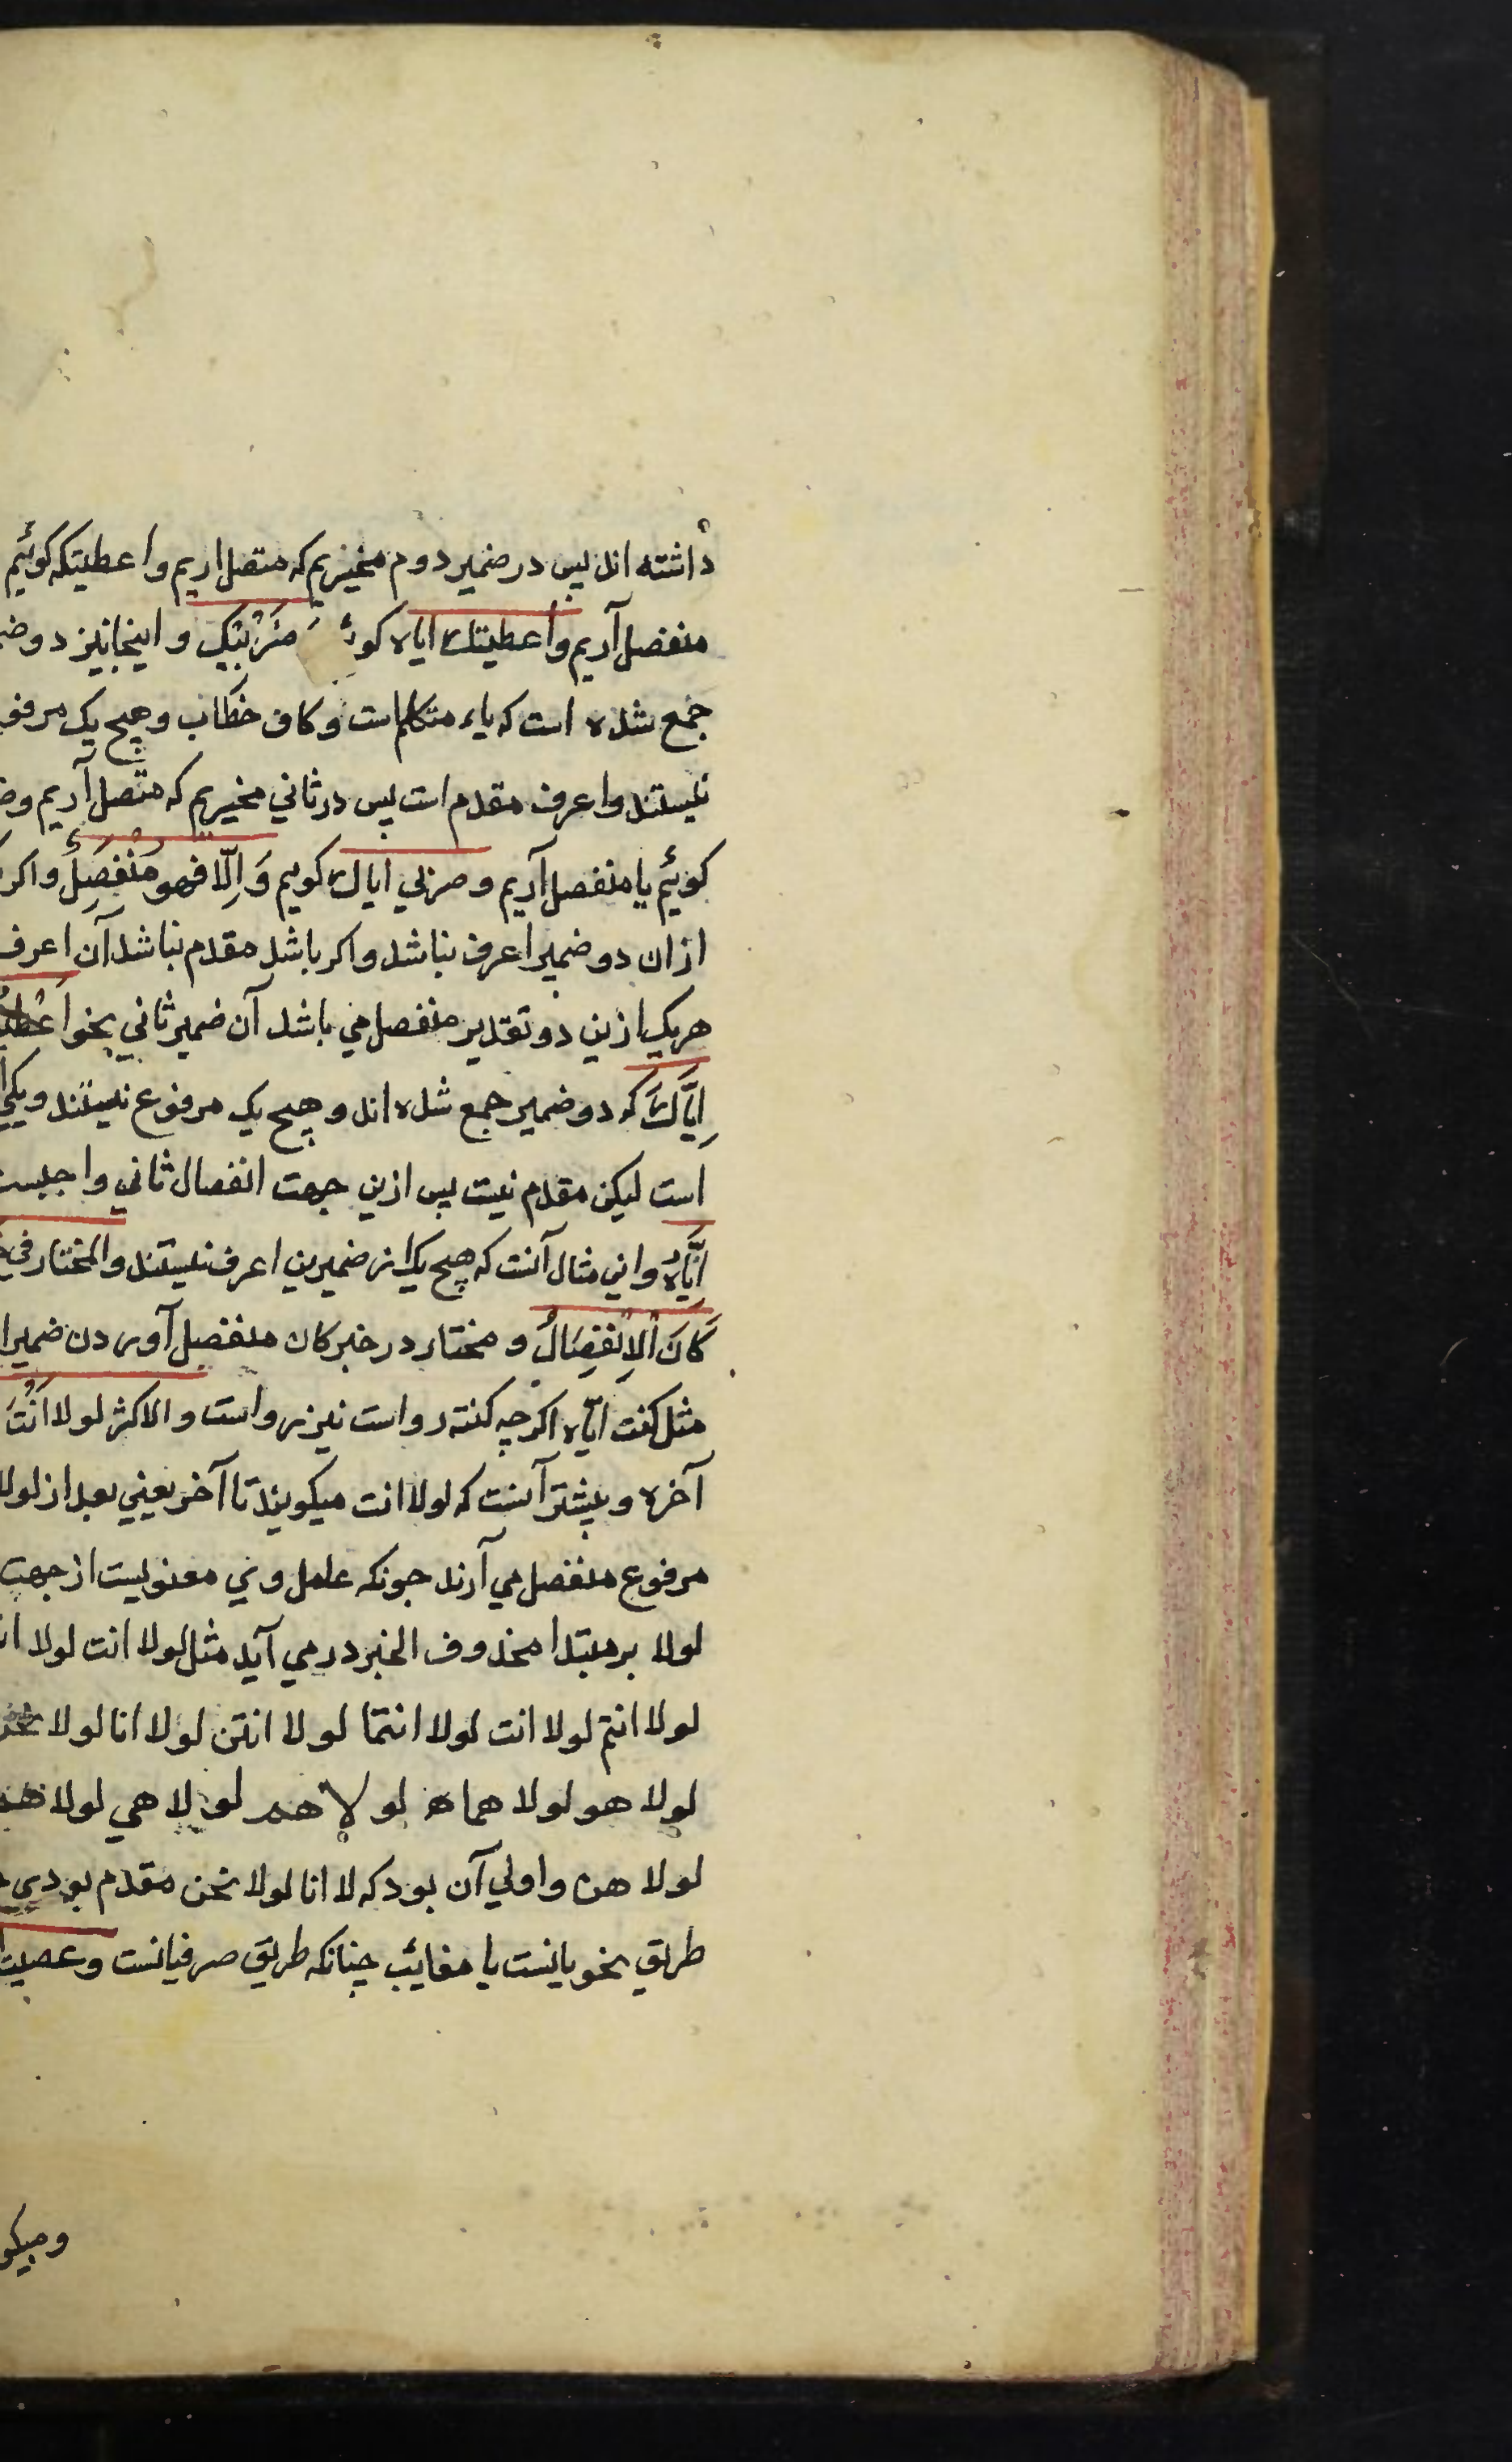 داشته اند پس در ضمیر دوم مخیریم که متصل اریم واعطیتکه کوئیم
منفصل آریم واعطیتك ایاه ضَرْبِیْكَ و اینجا نیز دو
جمع شده است که یاء متکلم است و کاف خطاب و هیچ یک
نیستند و اعرف مقدم است پس در ثاني مخیریم که متّصل آریم
کوئیم یا منفصل آریم و ضربي ایاك کویم وَ اِلّا فهو مُنْفَصِلٌ واکر
ازان دو ضمیر اعرف نباشد و اکر باشد مقدم نباشد آن اعرف
هریک ازین دو تقدیر منفصل مي باشد آن ضمیر ثاني نحو
اِیَّاكَ که دو ضمیر جمع شده اند و هیچ یک مرفوع نیستند و یکی
است لیکن مقدم نیست پس ازین جهت انفصال ثاني واجبست
اِیَّاهُ و این مثال آنست که هیچ یک از ضمیرین اعرف نیستند والمختار في
كَانَ اْلاِنْفِصَالُ و مختار در خبر کان منفصل آوردن ضمیر
مثل کنت ایّاه اکرچه کنته رواست نیز رواست والاکثر لولا اَنْتَ
آخره و بیشتر آنست که لولا انت میکویند تا آخر یعني بعد از لولا
مرفوع منفصل مي آرند جونکه عامل وي معنویست از جهت
لولا بر مبتدا محذوف الخبر در مي آید مثل لولا انت لولا
لولا انتم لولا انت لولا انتما لولا انتن لولا انا لولا نحن
لولا هو لولا هما لولا هم لولا هي لولا
لولا هن و اولي آن بود که لا انا لولا نحن مقدم بودي
طریق نحویانست یا مغائب چنانکه طریق صرفیانست وعصیت